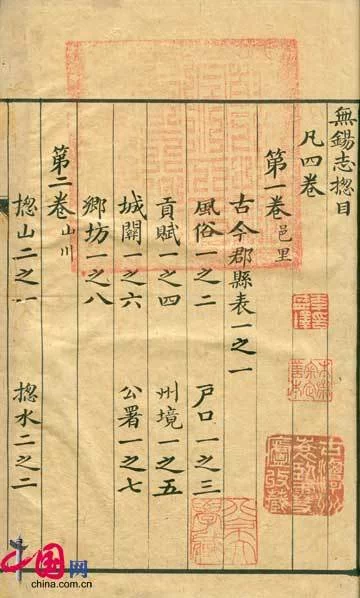 無錫志揔目
凡四卷
第一卷 邑里
古今郡縣表一之一
風俗一之二 戶口一之三
貢賦一之四 州境一之五
城關一之六 公署一之七
鄉坊一之八
第二卷 山川
揔山二之一 揔水二之二
中国网
china.com.cn